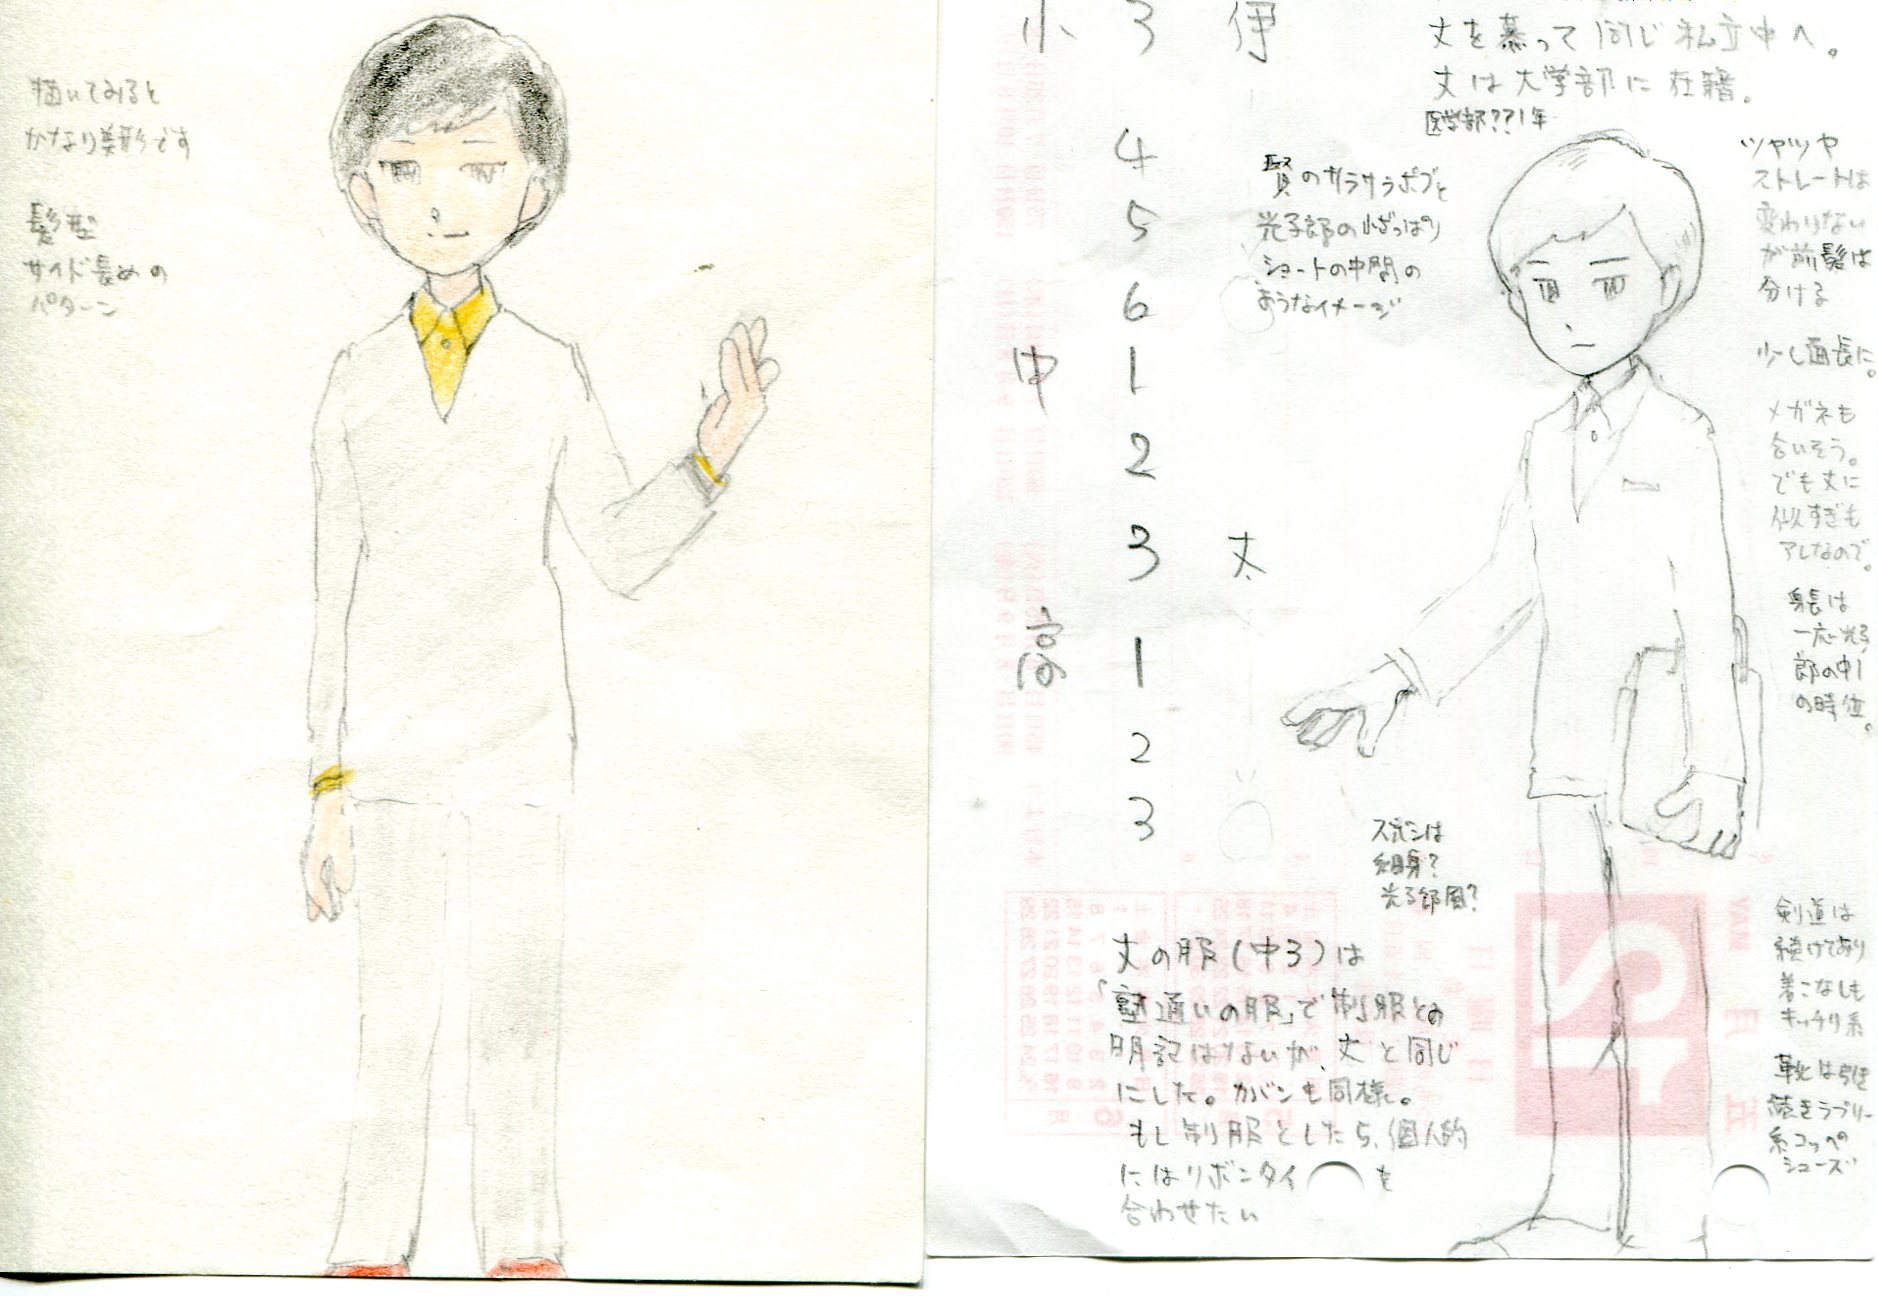 描いてみると
かなり美形です
髪型
サイド長めの
パターン
小 3 伊
4
5
6
中 1
2
3 丈
高 1
2
3
丈を慕って同じ私立中へ。
丈は大学部に在籍。
医学部??1年
賢のサラサラボブと
光子郎の小ざっぱり
ショートの中間の
ようなイメージ
ツヤツヤ
ストレートは
変わりない
が前髪は
分ける
少し面長に。
メガネも
合いそう。
でも丈に
似すぎも
アレなので。
身長は
一応光子
郎の中1
の時位。
ズボンは
細身?
光子郎風?
剣道は
続けており
着こなしも
キッチリ系
靴は引き
続きラブリー
系コッペ
シューズ
丈の服(中3)は
「塾通いの服」で制服との
明記はないが、丈と同じ
にした。カバンも同様。
もし制服としたら、個人的
にはリボンタイを
合わせたい